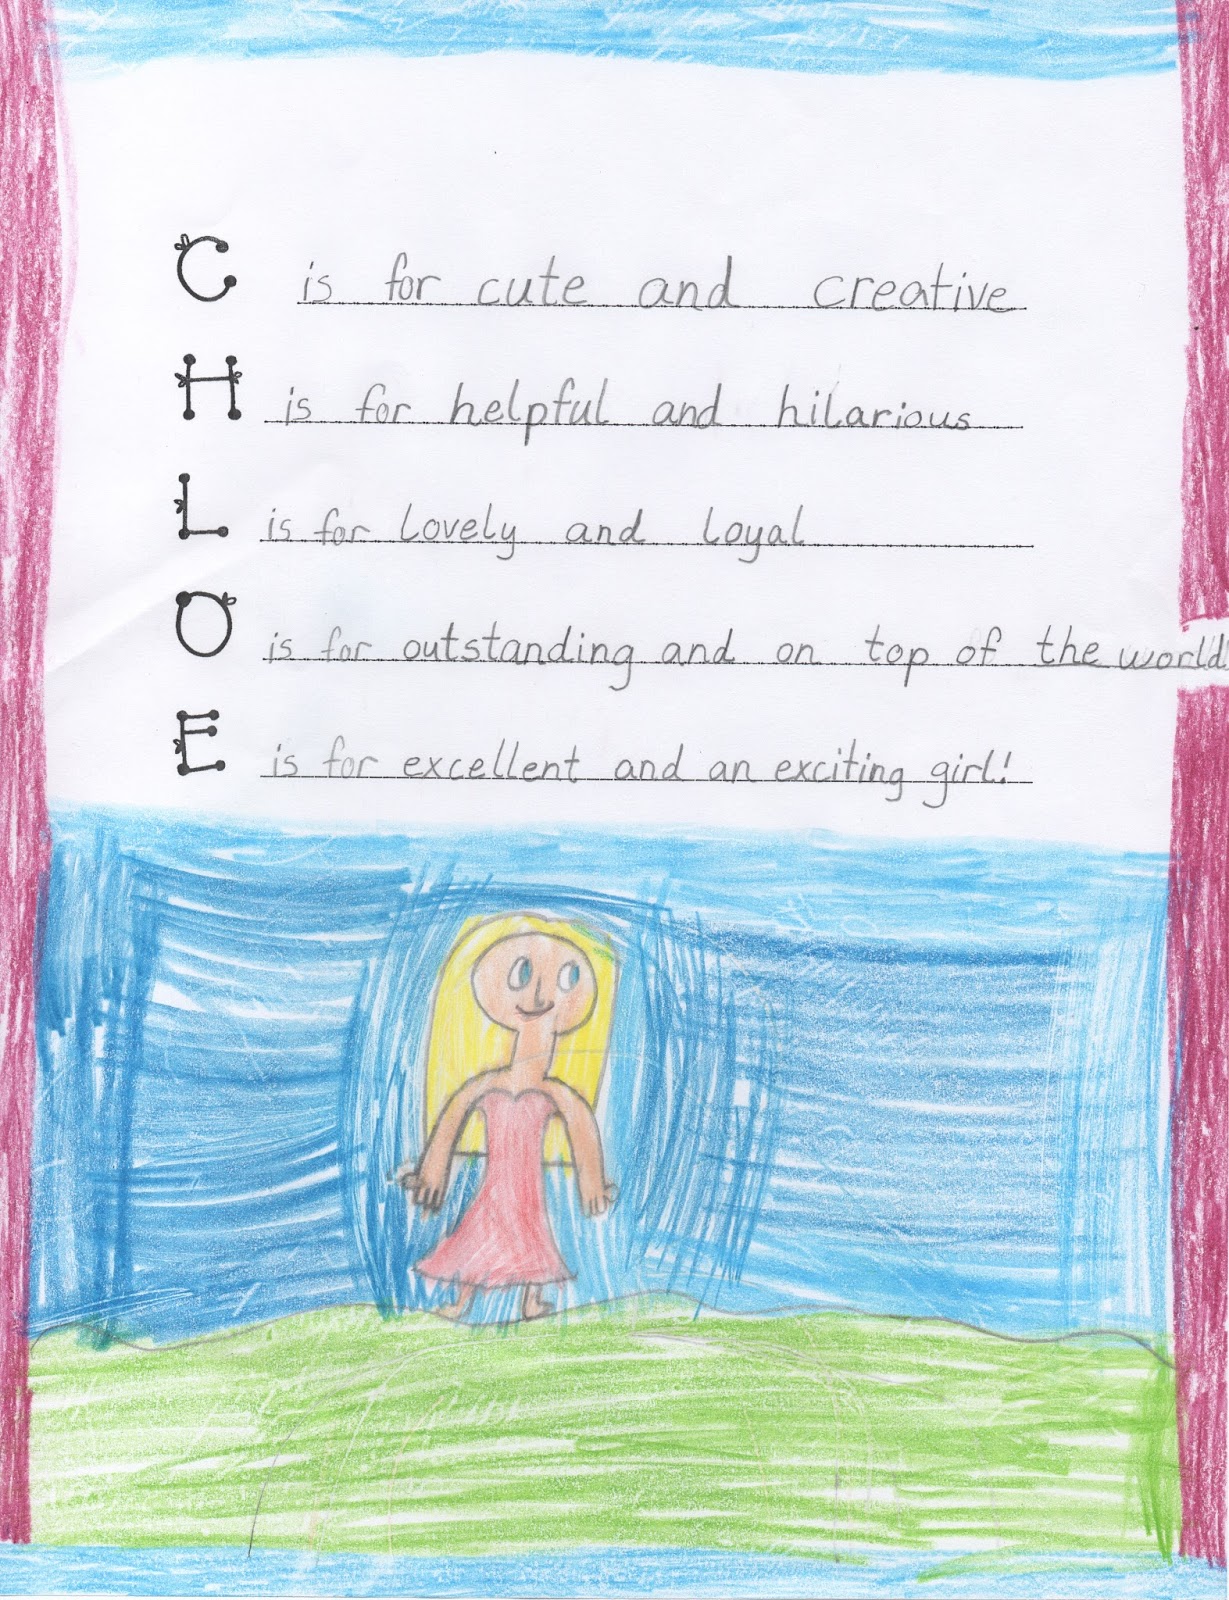 C is for cute and creative
H is for helpful and hilarious
L is for lovely and loyal
O is for outstanding and on top of the world!
E is for excellent and an exciting girl!